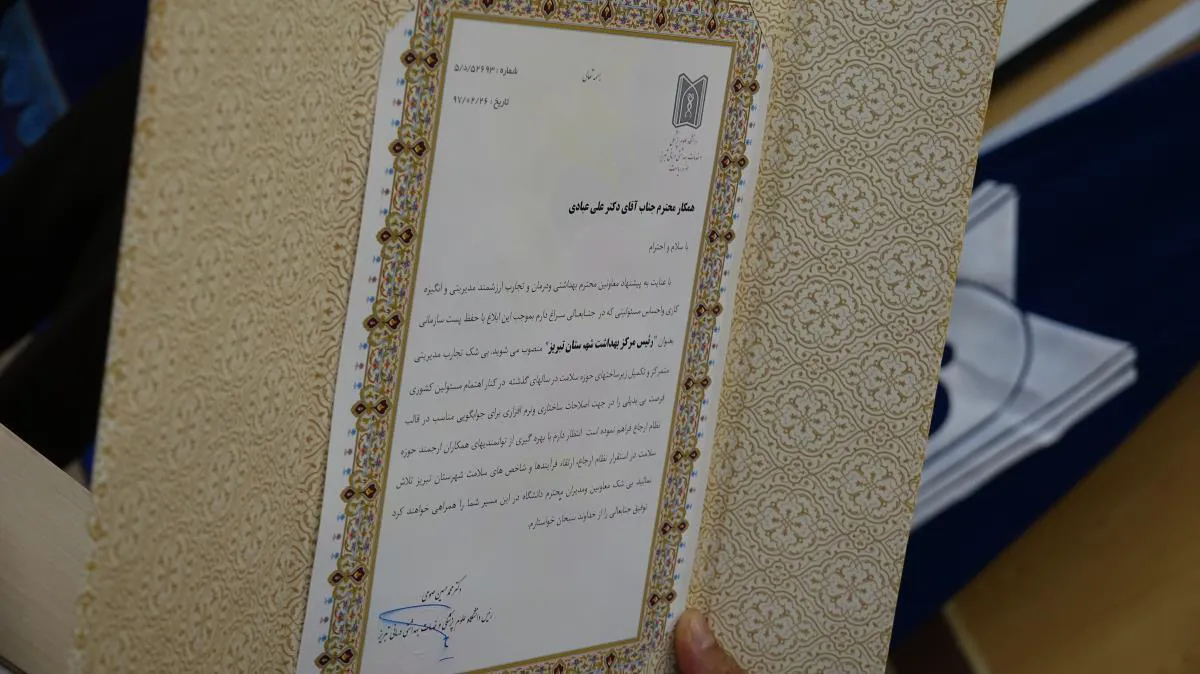 بسمه تعالی
شماره : ۵/د/۵۲۶۹۳
تاریخ : ۹۷/۰۲/۲۶
دانشگاه علوم پزشکی
و خدمات بهداشتی درمانی تبریز
حوزه ریاست
همکار محترم جناب آقای دکتر علی عبادی
با سلام و احترام
با عنایت به پیشنهاد معاونین محترم بهداشتی ودرمان و تجارب ارزشمند مدیریتی و انگیزه
کاری واحساس مسئولیتی که در جنابعالی سراغ دارم بموجب این ابلاغ با حفظ پست سازمانی
بعنوان "رئیس مرکز بهداشت شهرستان تبریز" منصوب می شوید. بی شک تجارب مدیریتی
متمرکز و تکمیل زیرساختهای حوزه سلامت در سالهای گذشته در کنار اهتمام مسئولین کشوری
فرصت بی بدیلی را در جهت اصلاحات ساختاری ونرم افزاری برای جوابگویی مناسب در قالب
نظام ارجاع فراهم نموده است. انتظار دارم با بهره گیری از توانمندیهای همکاران ارجمند حوزه
سلامت در استقرار نظام ارجاع، ارتقاء فرآیندها و شاخص های سلامت شهرستان تبریز تلاش
نمائید. بی شک معاونین ومدیران محترم دانشگاه در این مسیر شما را همراهی خواهند کرد
توفیق جنابعالی را از خداوند سبحان خواستارم.
دکتر محمد حسین صومی
رئیس دانشگاه علوم پزشکی و خدمات بهداشتی درمانی تبریز